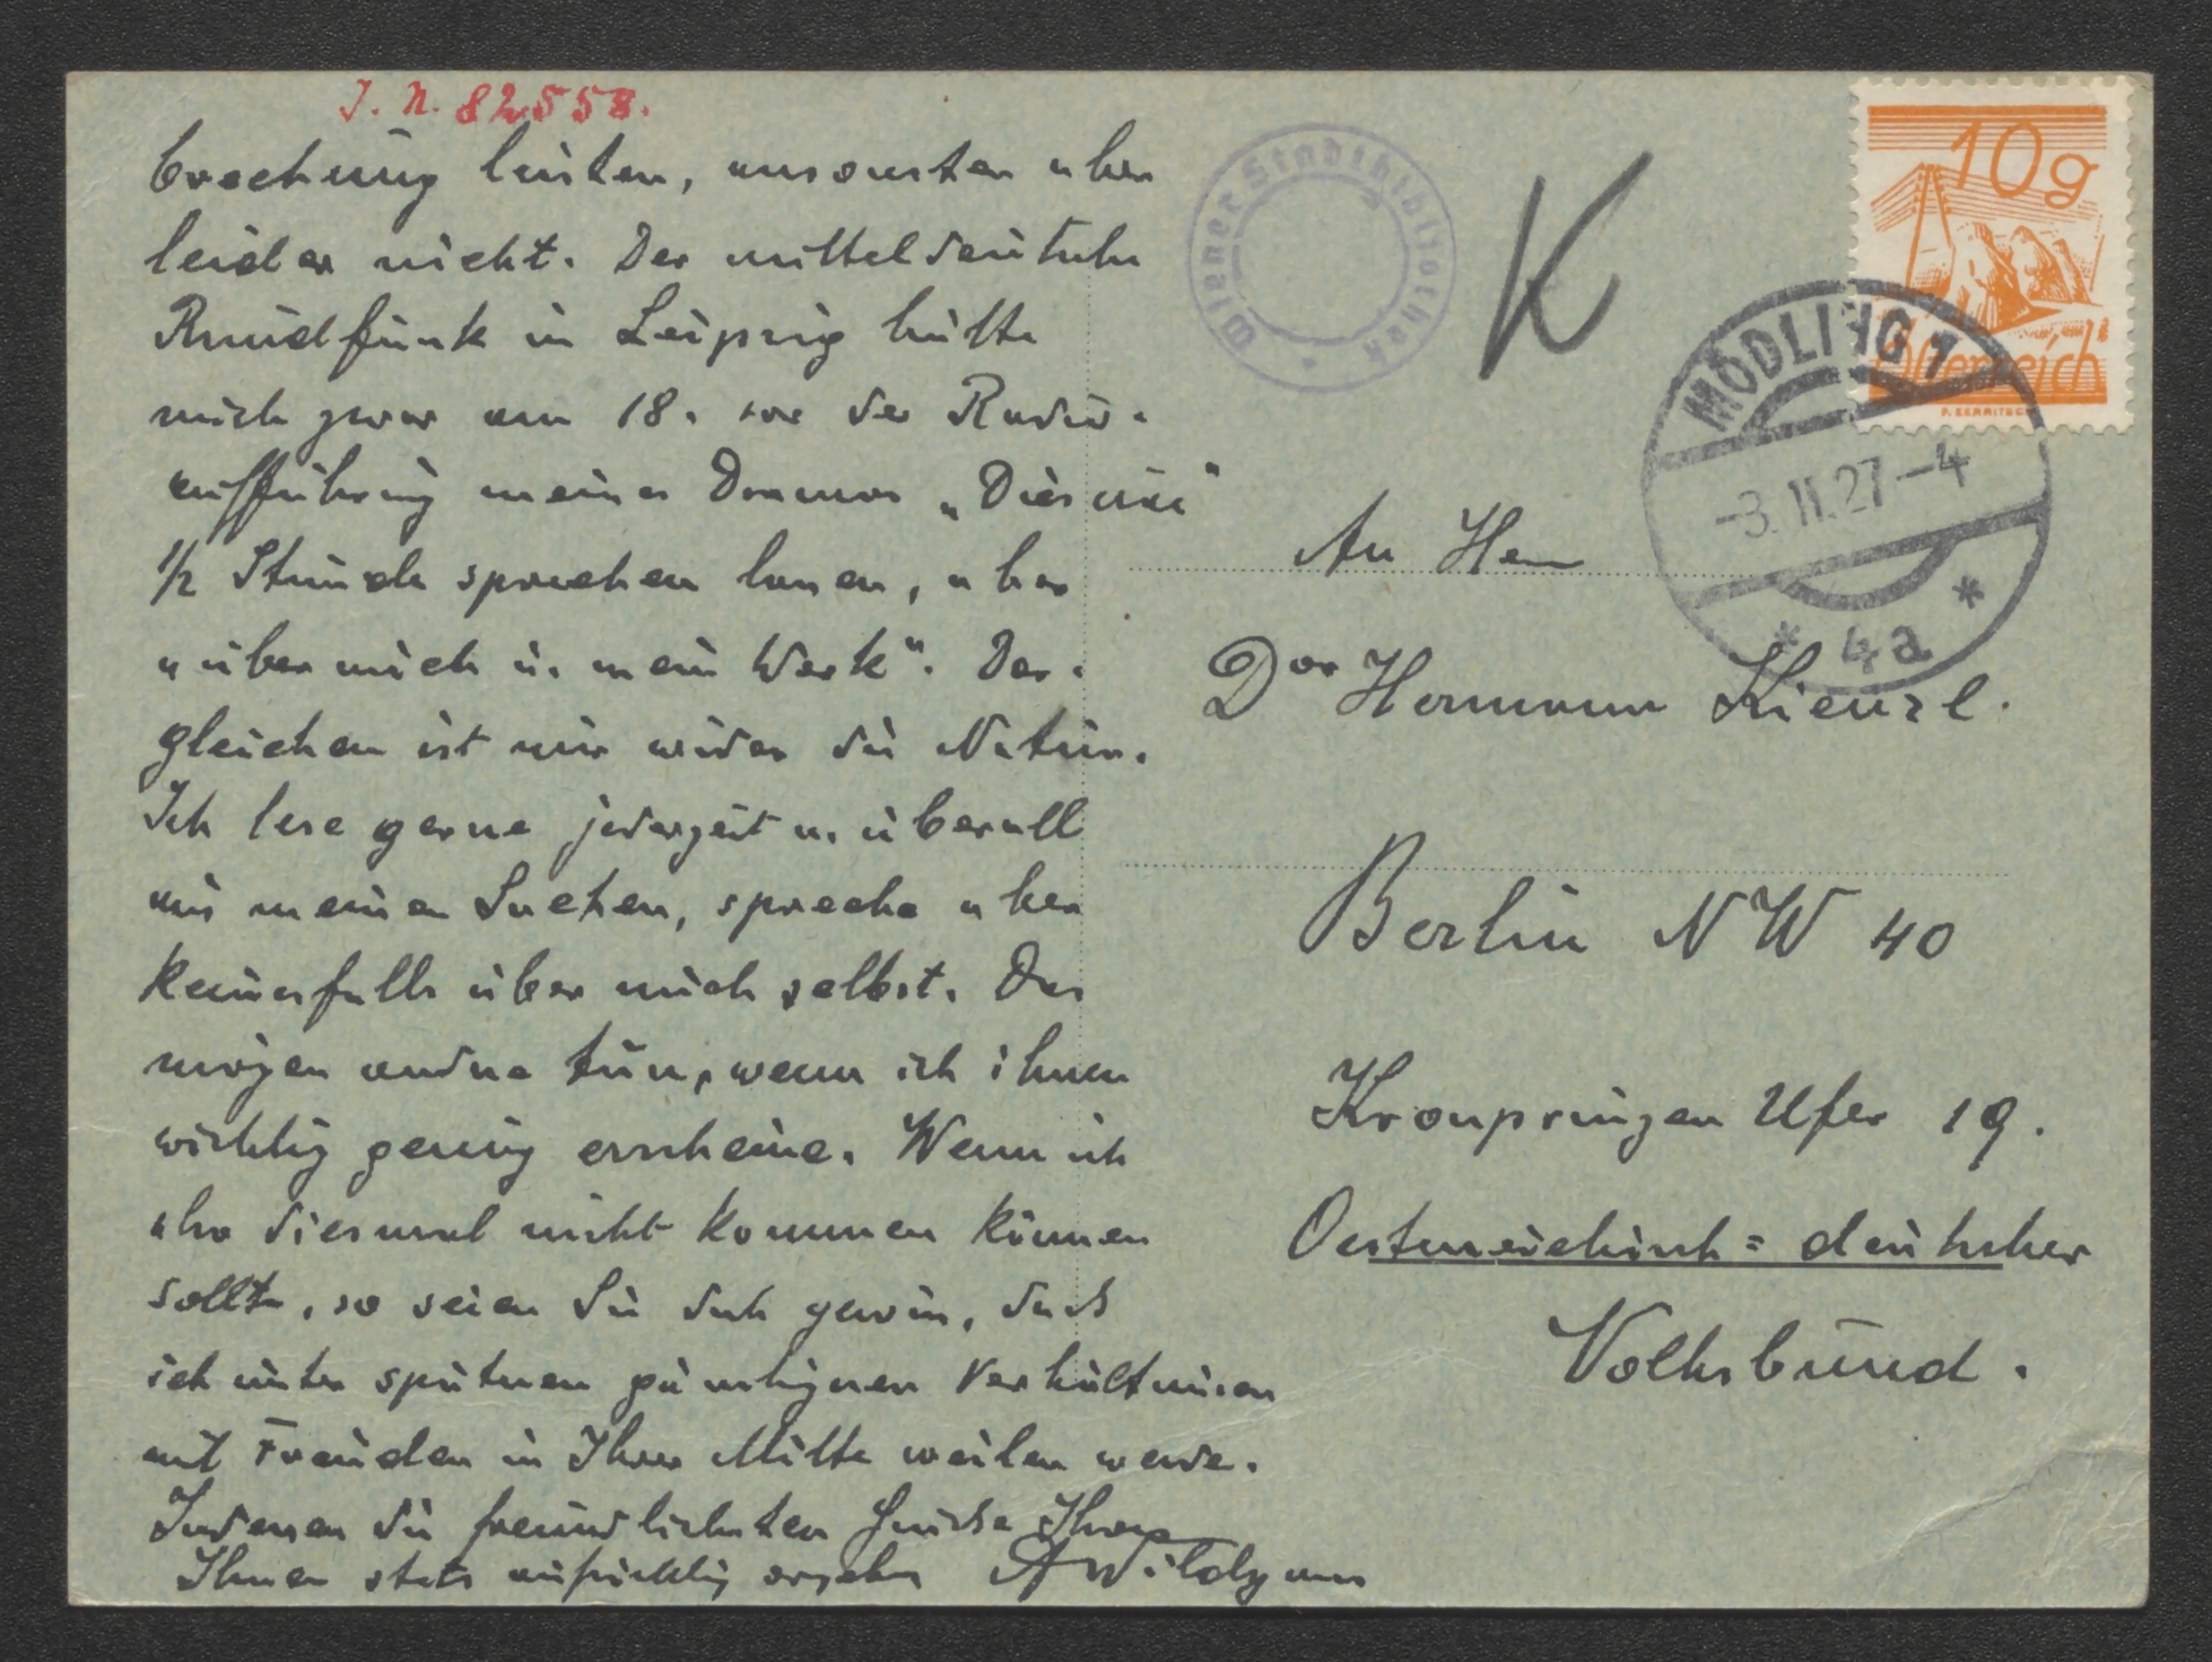 J. N. 82558.
brechung leisten, ansonsten aber
leider nicht. Der mitteldeutsche
Rundfunk in Leipzig hätte
mich zwar am 18. vor der Radio-
aufführung meines Dramas „Dies irae"
1/2 Stunde sprechen lassen, aber
„über mich u. mein Werk". Der-
gleichen ist mir wider die Natur.
Ich lese gerne jederzeit u. überall
aus meinen Sachen, spreche aber
keinesfalls über mich selbst. Das
mögen andre tun, wenn ich ihnen
wichtig genug erscheine. Wenn ich
also diesmal nicht kommen können
sollte, so seien Sie doch gewiss, dass
ich unter späteren günstigeren Verhältnissen
mit Freuden in Ihrer Mitte weilen werde.
Indessen die freundlichsten Grüsse Ihres
Ihnen stets aufrichtig ergebenen AWildgans
Wiener Stadtbibliothek
K
10g
Österreich
MÖDLING 1
-3.11.27-4
* 4a *
An Herrn
Dor Hermann Kienzl.
Berlin NW 40
Kronprinzen Ufer 19.
Oesterreichisch=deutscher
Volksbund.